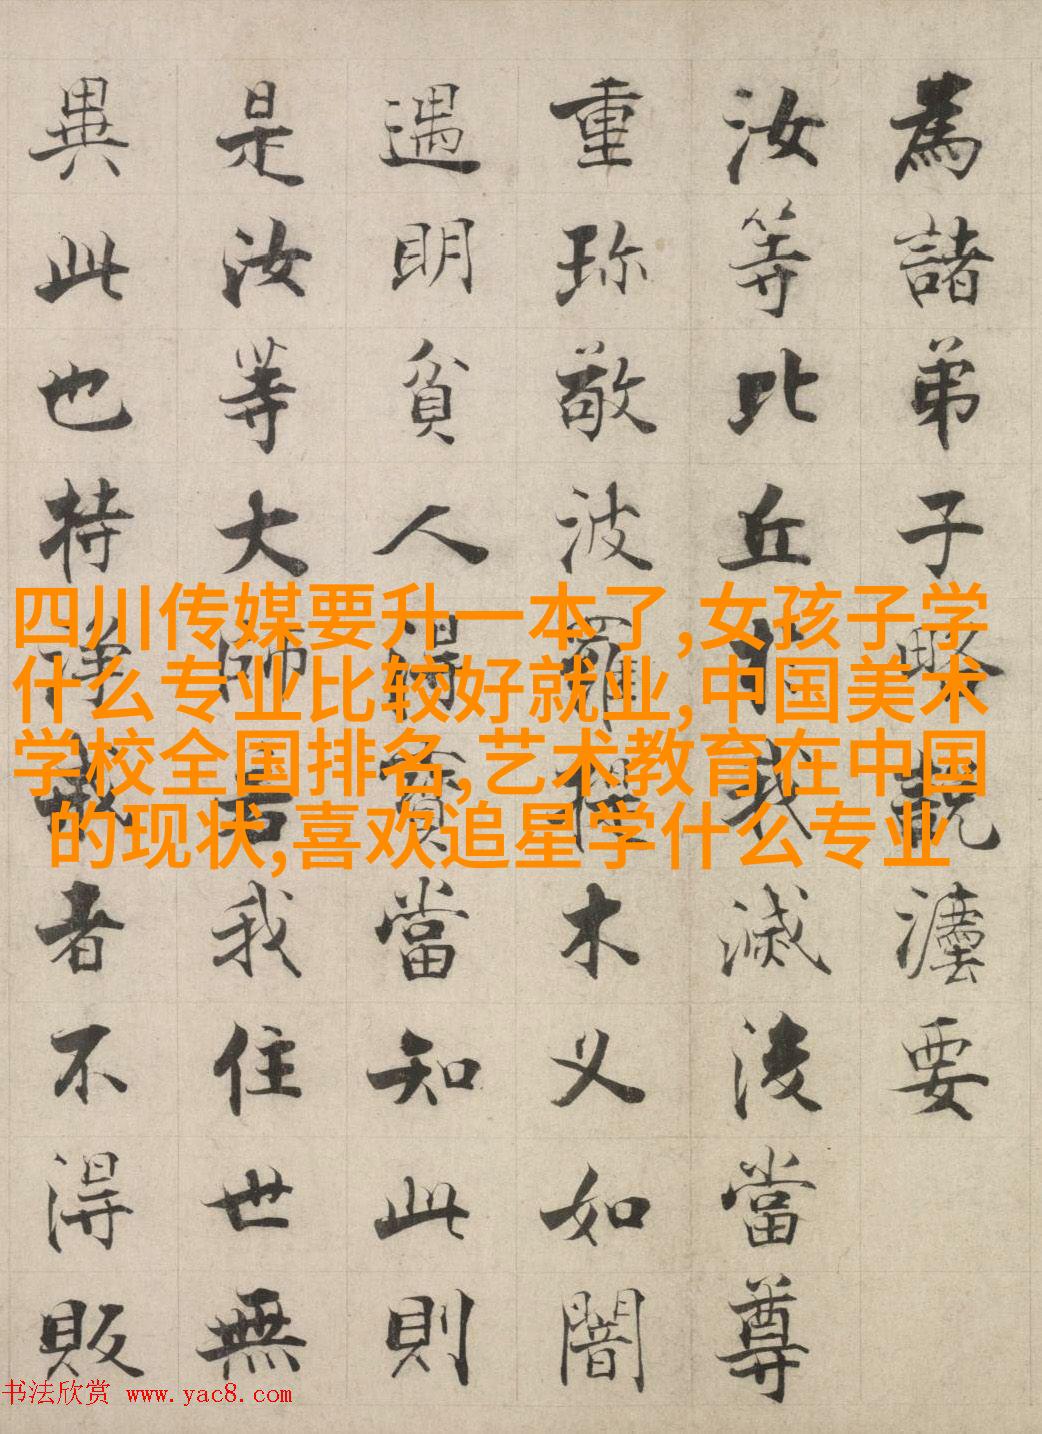 為諸弟子略説灋要
汝等比丘於我滅後當尊
重珎敬波羅提木义如闇
遇明貧人得寶當知此則
是汝等大師若我住世無
異此也持淨戒者不得販
四川传媒要升一本了,女孩子学
什么专业比较好就业,中国美术
学校全国排名,艺术教育在中国
的现状,喜欢追星学什么专业
书法欣赏 www.yac8.com